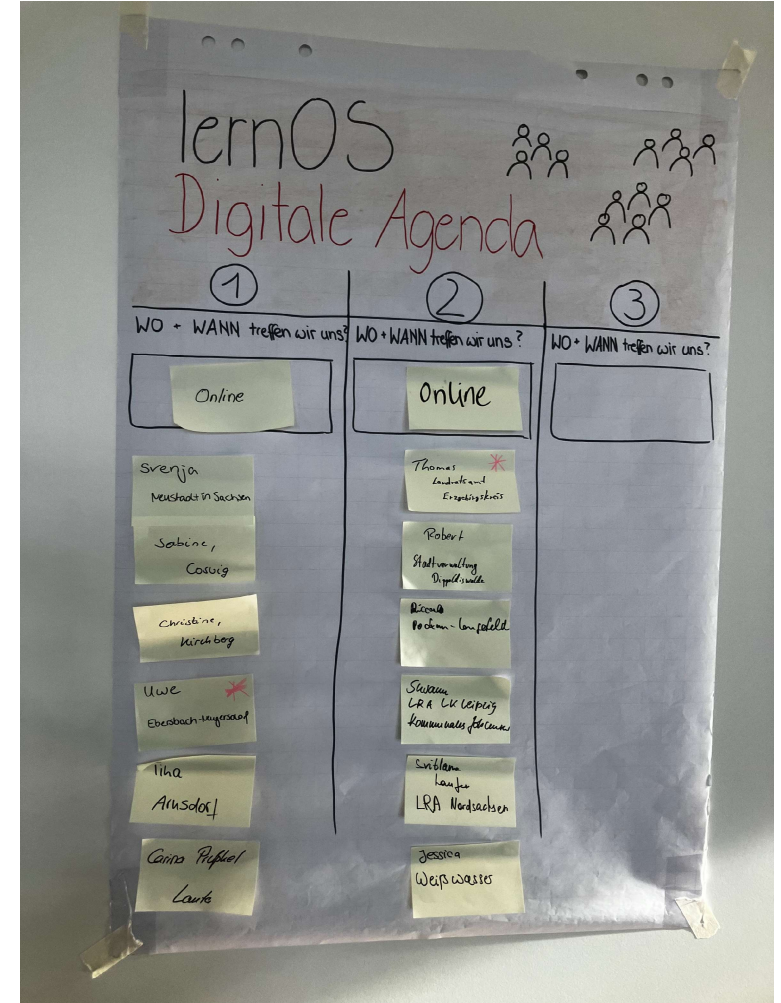 lernOS
Digitale Agenda
1
WO + WANN treffen wir uns?
Online
Svenja
Neustadt in Sachsen
Sabine,
Coswig
Christine,
Kirchberg
Uwe
Ebersbach-Neugersdorf
Tina
Arnsdorf
Carina
2
WO + WANN treffen wir uns?
Online
Thomas
Landratsamt
Erzgebirgskreis
Robert
Stadtverwaltung
Dippoldiswalde
Riccardo
Pockau-Lengefeld
LRA LK Leipzig
Kommunales Jobcenter
LRA Nordsachsen
Jessica
Weißwasser
3
WO + WANN treffen wir uns?